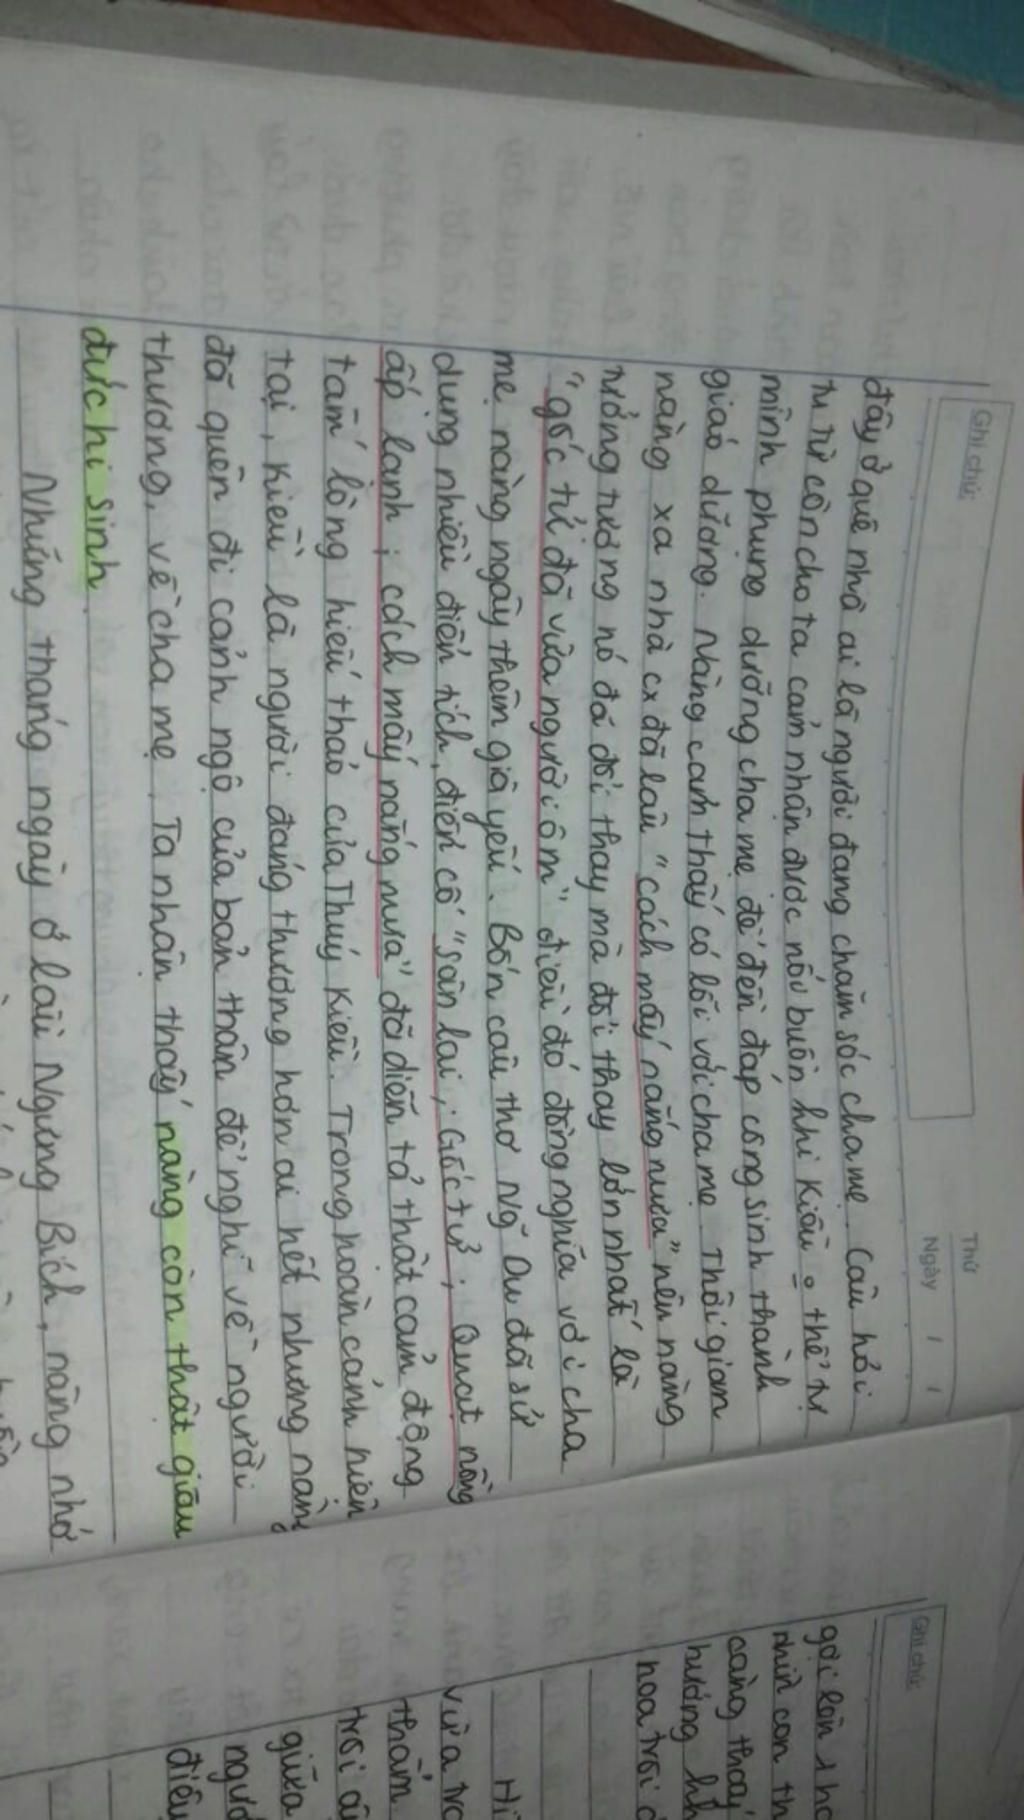 Ghi chú:
Thứ
Ngày / /
đây ở quê nhà ai là người đang chăm sóc cha mẹ. Câu hỏi
tu từ còn cho ta cảm nhận được nỗi buồn khi Kiều o thể tự
mình phụng dưỡng cha mẹ để đền đáp công sinh thành
giáo dưỡng. Nàng cảm thấy có lỗi với cha mẹ. Thời gian
nàng xa nhà cx đã lâu "cách mấy nắng mưa" nên nàng
tưởng tượng nó đã đổi thay mà đổi thay lớn nhất là
"gốc tử đã vừa người ôm" điều đó đồng nghĩa với cha
mẹ nàng ngày thêm già yếu. Bốn câu thơ Ng Du đã sử
dụng nhiều điển tích, điển cố "sân lai; Gốc tử; Quạt nồng
ấp lạnh; cách mấy nắng mưa" đã diễn tả thật cảm động
tấm lòng hiếu thảo của Thúy Kiều. Trong hoàn cảnh hiện
tại, Kiều là người đáng thương hơn ai hết nhưng nàng
đã quên đi cảnh ngộ của bản thân để nghĩ về người
thương, về cha mẹ. Ta nhận thấy nàng còn thật giàu
đức hi sinh
Những tháng ngày ở lầu Ngưng Bích, nàng nhớ
Ghi chú:
gợi lên
nhìn con th
càng thấy
hướng
hoa trôi
vừa
thảm
trôi
giữa
ngư
điệu